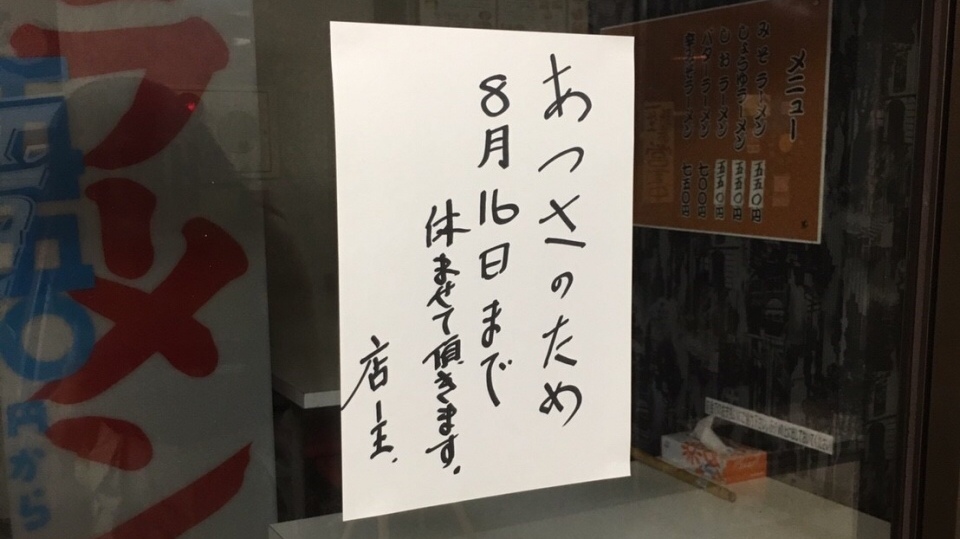 あつさのため
8月16日まで
休ませて頂きます。
店主.
メニュー
みそラーメン 五五〇円
しょうゆラーメン 五五〇円
しおラーメン 五五〇円
バターラーメン 七〇〇円
ラーメン 七五〇円
ラーメン
円から